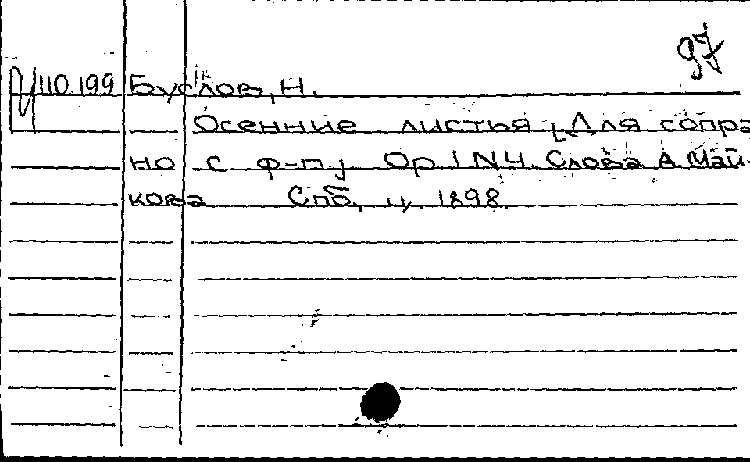 97
У110.199 Буслов, Н.
Осенние листья [Для сопра
но с ф-п.] Op. 1 N 4. Слова А. Май
кова Спб, ц. 1898.